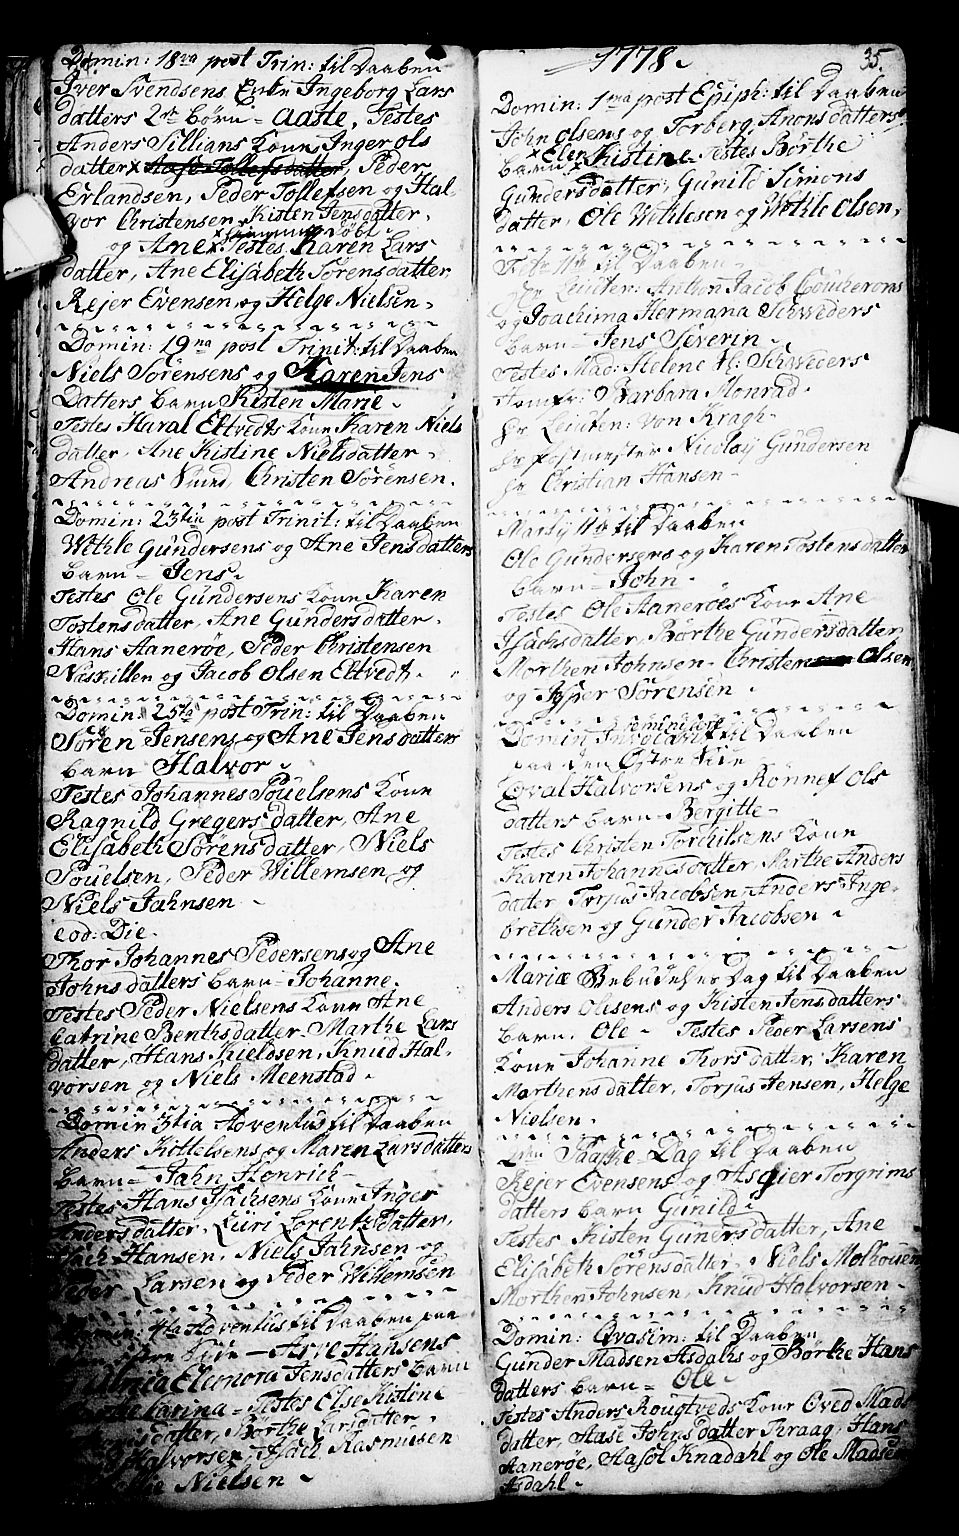 Domin: 18va post Trin: til Daaben
Iver Svendsens Enke Ingeborg Lars
datters 2de børn = Aaste, Testes
Anders Tillians Kone Inger Ols
datter x Aase Tollefsdatter, Peder
Erlandsen, Peder Tollefsen og Hal-
vor Christensen x Kisten Jensdatter.
hiemme døbt
og Ane x Testes Karen Lars
datter, Ane Elisabeth Sørensdatter
Rejer Evensen og Helge Nielsen.
Domin: 19na post Trinit: til Daaben
Niels Sørensens og Karen Jens
Datters barn Kisten Marie
Testes Haral Eltvedts Kone Karen Niels
datter, Ane Kistine Nielsdatter
Andreas Christen Sørensen.
Domin: 23tia post Trinit: til Daaben
Wethle Gundersens og Ane Jensdatters
barn = Jens.
Testes Ole Gundersens Kone Karen
Tostensdatter, Ane Gundersdatter,
Hans Aanerøe, Peder Christensen
Naskillen og Jacob Olsen Eltvedt.
Domin: 25ta post Trin: til Daaben
Søren Jensens og Ane Jensdatters
barn Halvor
Testes Johannes Pouelsens Kone
Ragnild Gregersdatter, Ane
Elisabeth Sørensdatter, Niels
Pouelsen, Peder Willemsen og
Niels Jahnsen
eod: Die.
Thor Johannes Pedersens og Ane
Johnsdatters barn = Johanne.
Testes Peder Nielsens Kone Ane
Catrine Benthsdatter, Marthe Lars
datter, Hans Kieldsen, Knud Hal-
vorsen og Niels Meenstad.
Domin 3tia Adventus til Daaben
Anders Kittelsens og Maren Larsdatters
barn = Jahn Henrich
Testes Hans Isachsens Kone Inger
Andersdatter, Luri Lorentzdatter,
Hansen, Niels Jahnsen og
Peder Larsen og Peder Willemsen
Domin: 4ta Adventus til Daaben paa
østre Side = Arve Hansens
Ulrica Eleonora Jensdatters barn
Karina = Testes Else Kistine
datter, Børthe Larsdatter,
Halvorsen, Isach Rasmusen
Nielsen
1778
35.
Domin: 1ma post Epiph: til Daaben
John Olsens og Torberg Anonsdatters
x Elen
barn x Kistine Testes Børthe
Gundersdatter, Gunild Simons
datter, Ole Wethlesen og Wethle Olsen.
til Daaben
Hr Leuten: Anthon Jacob Coucherons
og Joachima Hermana Schweders
barn = Jens Severin
Testes Mad: Helene H: Schweders
Jomfr: Barbara Monrad.
Hr Leuten: von Kragh
Hr Postmester Nicolay Gundersen
Hr Christian Hansen
Martij 11te til Daaben
Ole Gundersens og Karen Tostensdatter
barn = John.
Testes Ole Aaneroes Kone Ane
Isachsdatter, Børthe Gundersdatter,
Morthen Johnsen, Christen Olsen
og Jesper Sørensen
Reminiscere
Domin Invocavit til Daaben
paa den Østre Side
Eval Halvorsens og Rønnef Ols
datters barn = Bergitte
Testes Christen Torchilsens Kone
Karen Johannesdatter, Marthe Anders
datter Torjus Jacobsen, Anders Inge-
brethsen og Gunder Jacobsen
Mariæ Bebudelses Dag til Daaben
Anders Olsens og Kisten Jensdatters
barn, Ole Testes Peder Larsens
Kone Johanne Thorsdatter, Karen
Marthensdatter, Torjus Jensen, Helge
Nielsen.
2den Paaske Dag til Daaben
Rejer Evensens og Asgier Torgrims
datters barn Gunild
Testes Kisten Gunersdatter, Ane
Elisabeth Sørensdatter, Niels Molhousen
Morthen Johnsen, Knud Halvorsen
Domin: Qvasim: til Daaben
Gunder Madsen Asdahls og Børthe Hans
datters barn = Ole
Testes Anders Rougtveds Kone Oved Mads
datter, Aase Johnsdatter Kraag, Hans
Aanerøe, Aasol Knadahl og Ole Madsen
Asdahl